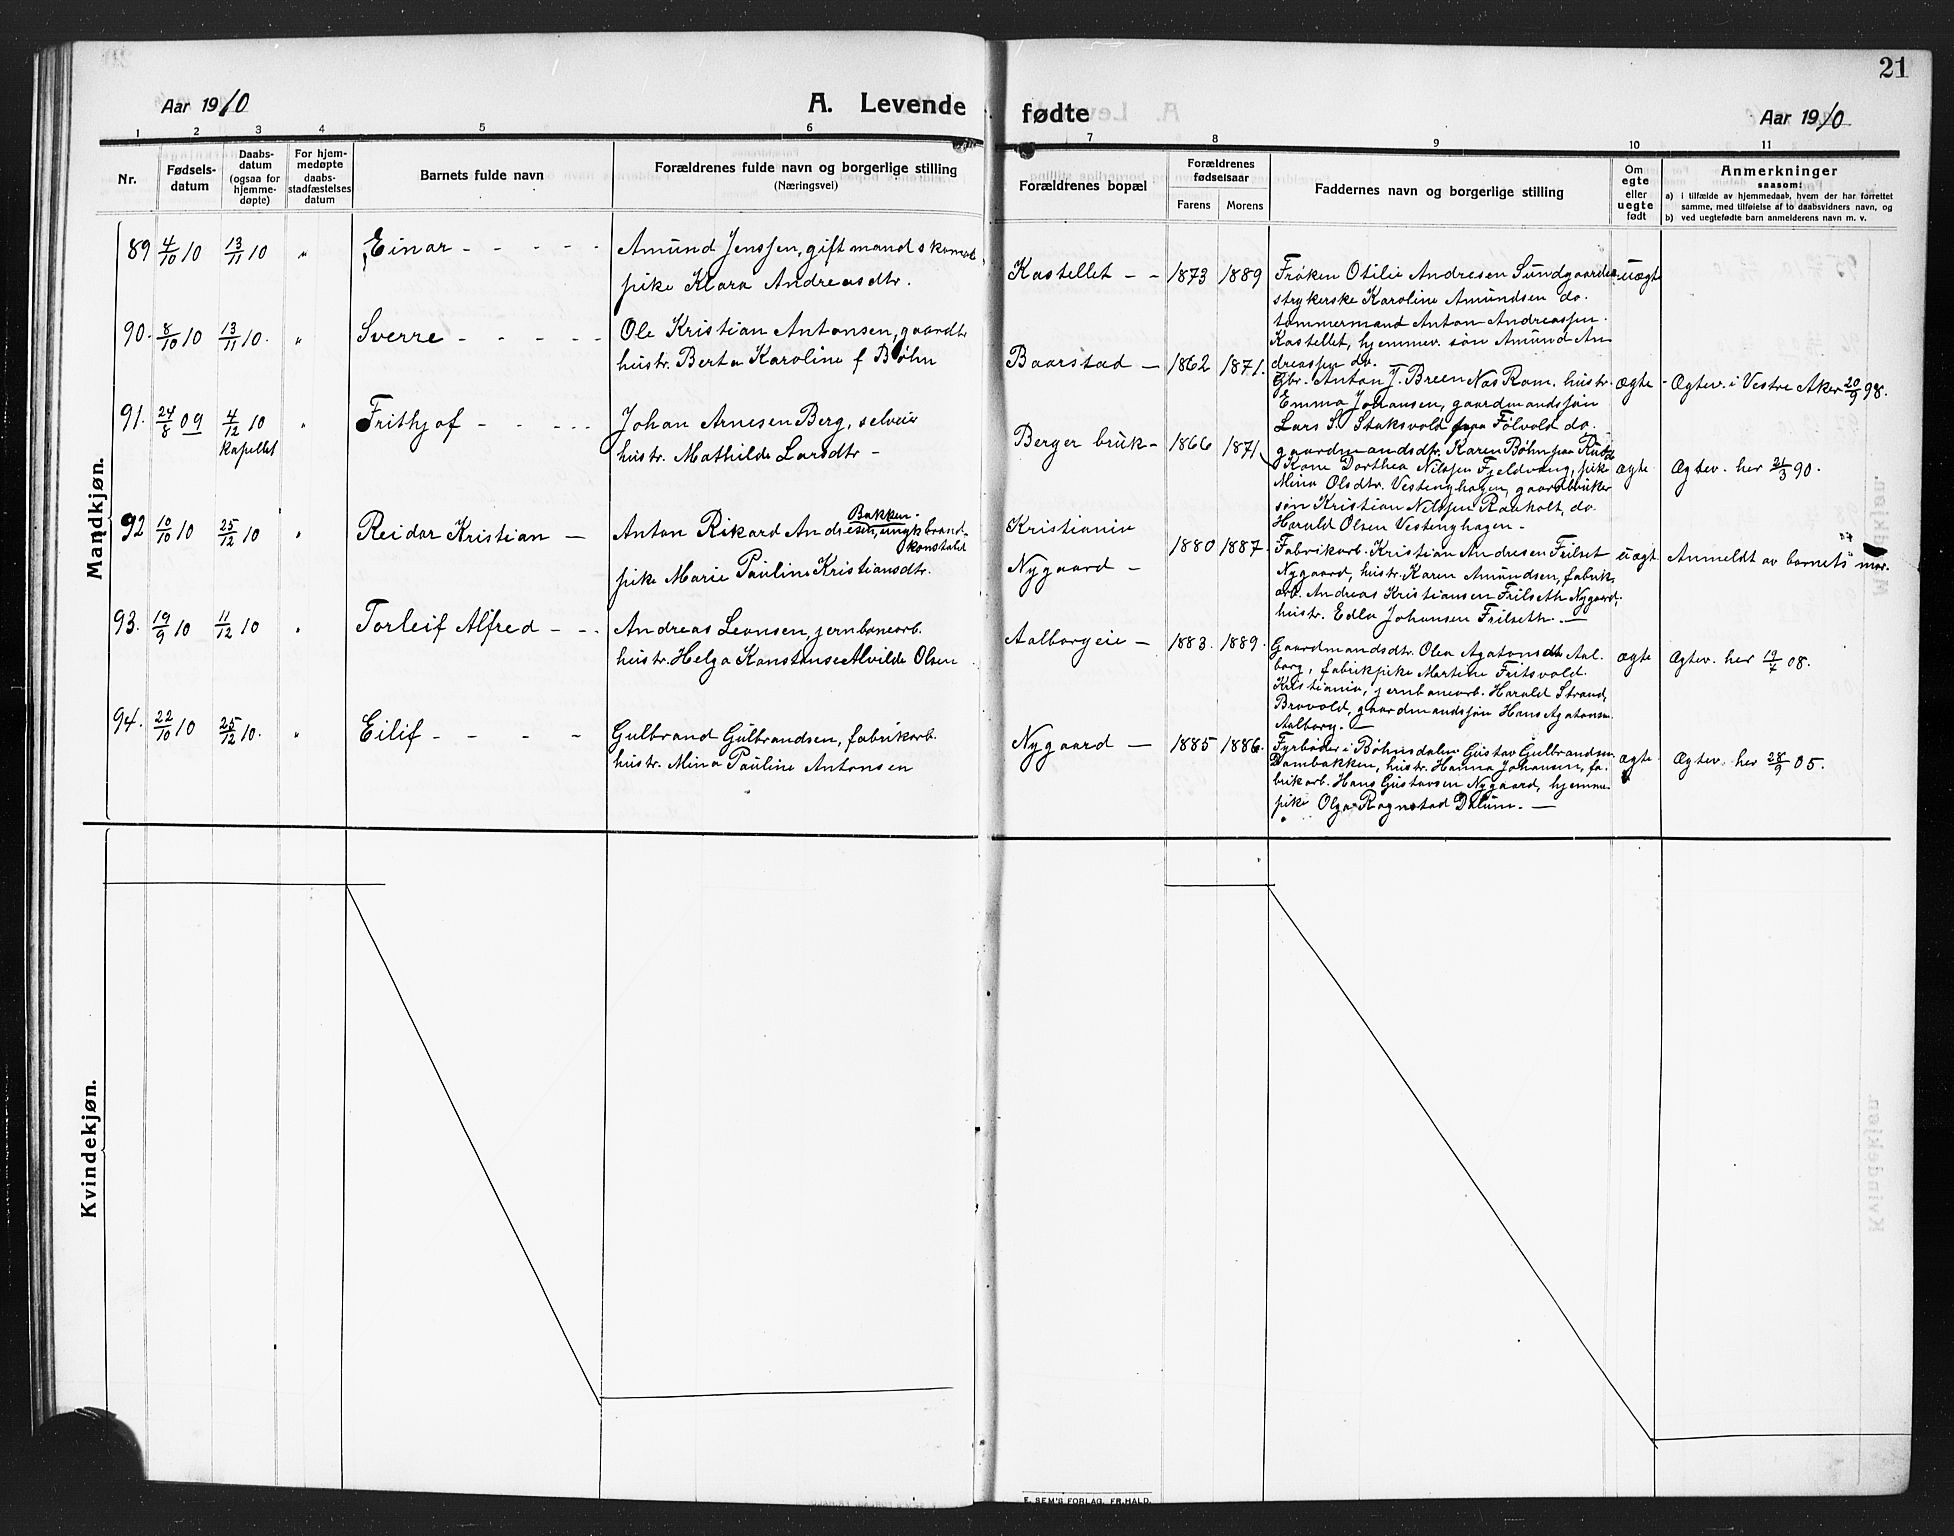 21
Aar 1910
A. Levende fødte
Aar 1910
1 2 3 4 5 6 7 8 9 10 11
Nr.
Fødsels-
datum
Daabs-
datum
(ogsaa for
hjemme-
døpte)
For hjem-
medøpte
daabs-
stadfæstelses
datum
Barnets fulde navn
Forældrenes fulde navn og borgerlige stilling
(Næringsvei)
Forældrenes bopæl
Forældrenes
fødselsaar
Farens Morens
Faddernes navn og borgerlige stilling
Om
egte
eller
uegte
født
Anmerkninger
saasom:
a) i tilfælde av hjemmedaab, hvem der har forrettet
samme, med tilføielse af to daabsvidners navn, og
b) ved uegtefødte barn anmelderens navn m. v.
Mandkjøn.
89 4/10 10 13/11 10 " Einar - - - - -
Amund Jenssen, gift mand
pike Klara Andreasdtr.
Kastellet - - 1873 1889
Frøken Otilie Andresen Sundgaarden
strykerske Karoline Amundsen do.
tømmermand Anton Andreassen
Kastellet, hjemmev. søn Amund An
dreassen do.
uægte
90. 8/10 10 13/11 10. " Sverre - - - - -
Ole Kristian Antonsen, gaardbr
hustr. Berta Karoline f Bøhn
Baarstad - 1862 1871.
Gbr. Anton J. Breen Nas Rom. hustr.
Emma Johansen, gaardmandssøn
Lars S. Staksvold Fölvold do.
gaardmandsdtr. Karen Bøhn paa Rud
ægte - Ægtev. i Vestre Aker 20/9 98.
91. 24/8 09 4/12 10 " Frithjof - - - - -
Kapellet
Johan Arnesen Berg, selveier
hustr. Mathilde Larsdtr -
Berger bruk - 1866 1871
Kone Dorthea Nilssen Fjeldvang, pike
Mina Olsdtr. Vestenghagen, gaardbruker
søn Kristian Nilssen Rauholt, do.
Harald Olsen Vestenghagen -
ægte Ægtev. her 21/3 90.
92 10/10 10 25/12 10 " Reidar Kristian -
Bakken
Anton Rikard Andresen, ungk brand-
konstabel
pike Marie Pauline Kristiansdtr.
Kristiania
Nygaard - 1880 1887.
Fabrikarb. Kristian Andresen Frilset
Nygaard, hustr. Karen Amundsen, fabrik
arb. Andreas Kristiansen Frilseth Nygaard,
hustr. Edla Johansen Frilseth. -
uægt Anmeldt av barnets mor.
93. 19/9 10 11/12 10 " Torleif Alfred - -
Andreas Leonsen, jernbanearb.
hustr. Helga Konstanse Alvilde Olsen
Aalborgeie - 1883. 1889.
Gaardmandsdtr. Olea Agatonsdtr Aal.
borg, fabrikpike Martine Fritsvold
Kristiania, jernbanearb. Harald Strand,
Brovold, gaardmandssøn Hans Agatonsn
Aalborg. -
ægte Ægtev. her 19/7 08.
94. 22/10 10 25/12 10. " Eilif - - - -
Gulbrand Gulbrandsen, fabrikarb.
hustr. Mina Pauline Antonsen
Nygaard - 1885 1886.
Fyrbøder i Bøhnsdalen Gustav Gulbrandsen
Dambakken, hustr. Hanna Johansen, fa-
brikarb. Hans Gustavsen Nygaard, hjemme
pike Olga Rognstad Dalum. -
ægte Ægtev. her 28/9 05.
Kvindekjøn.
E. SEM'S FORLAG, FR.HALD.